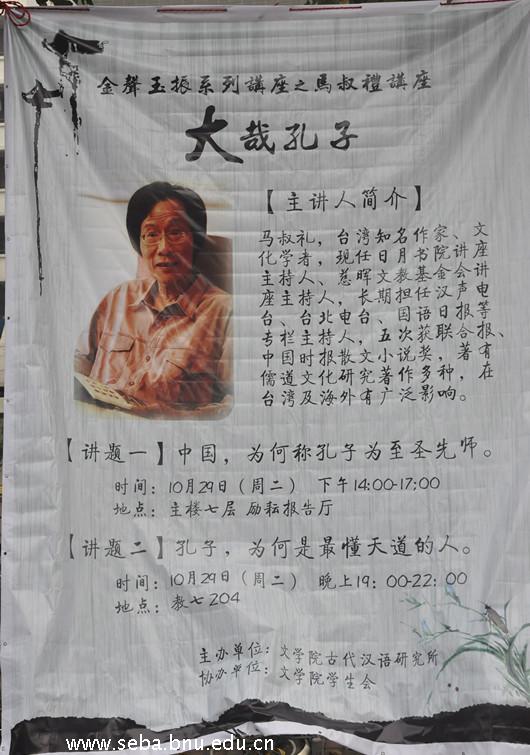 金聲玉振系列講座之馬叔禮講座
大哉孔子
【主讲人简介】
马叔礼，台湾知名作家、文
化学者，现任日月书院讲座
主持人、慈晖文教基金会讲
座主持人，长期担任汉声电
台、台北电台、国语日报等
专栏主持人，五次获联合报、
中国时报散文小说奖，著有
儒道文化研究著作多种，在
台湾及海外有广泛影响。
【讲题一】中国，为何称孔子为至圣先师。
时间：10月29日（周二） 下午14:00-17:00
地点：主楼七层 励耘报告厅
【讲题二】孔子，为何是最懂天道的人。
时间：10月29日（周二） 晚上19：00-22：00
地点：教七204
主办单位：文学院古代汉语研究所
协办单位：文学院学生会
www.seba.bnu.edu.cn